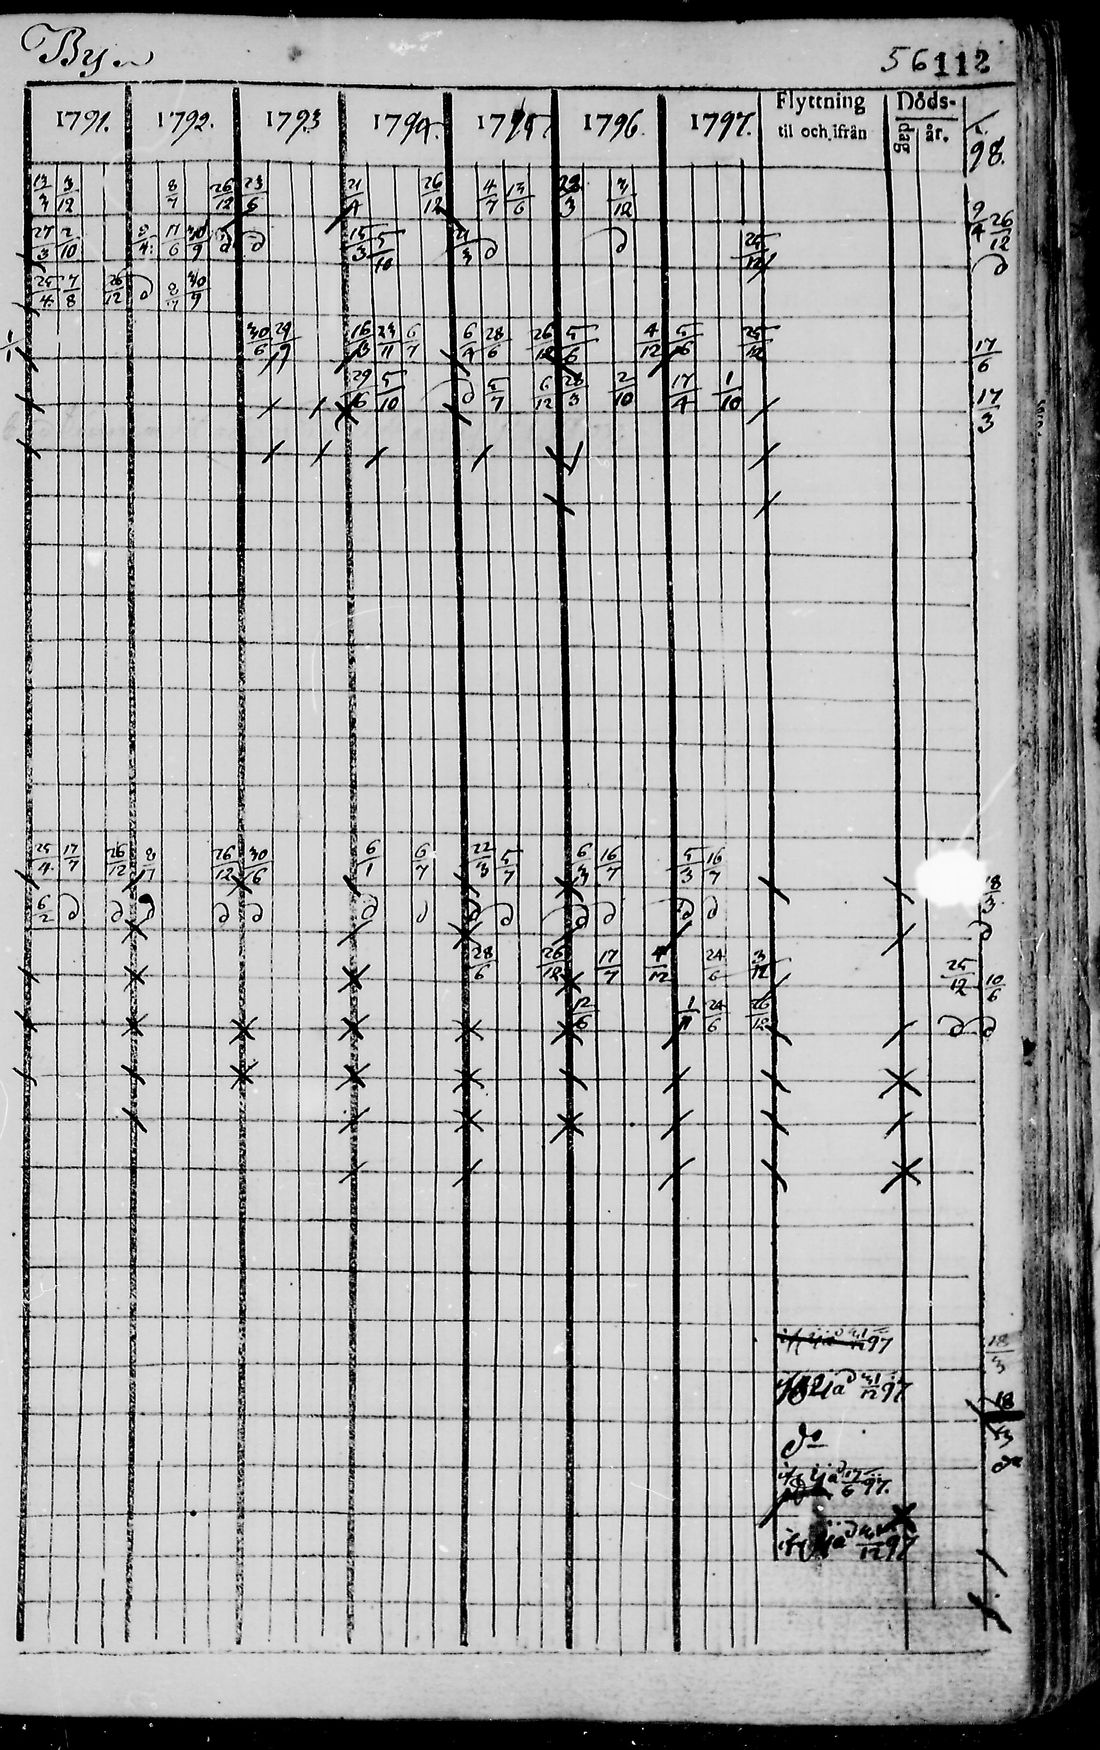 By
56 112
1791. 1792. 1793 1794. 1795 1796. 1797. Flyttning til och ifrån Döds- dag år. 98.
13/3 3/12 8/7 26/12 23/6 21/4 26/12 4/7 13/6 28/3 3/12 9/4 26/12
27/3 2/10 8/4 17/6 30/9 d d 15/3 5/10 21/3 d d 25/12 d
25/4 7/8 26/12 d 8/7 30/9
30/6 29/9 16/3 23/11 6/7 6/4 28/6 26/12 5/6 4/12 5/6 25/12 17/6
29/6 5/10 d 5/7 6/12 28/3 2/10 17/4 1/10 17/3
25/4 17/7 26/12 8/17 26/12 30/6 6/1 6/7 22/3 5/7 6/3 16/7 5/3 16/7 18/3
6/2 d d d d d d d d d d d d d d
28/6 26/12 17/7 4/12 24/6 3/12 25/12 10/6
12/6 1/11 24/6 26/12 d d
97 18/3
31/12 97 18/3
do do
17/6 97.
12 97